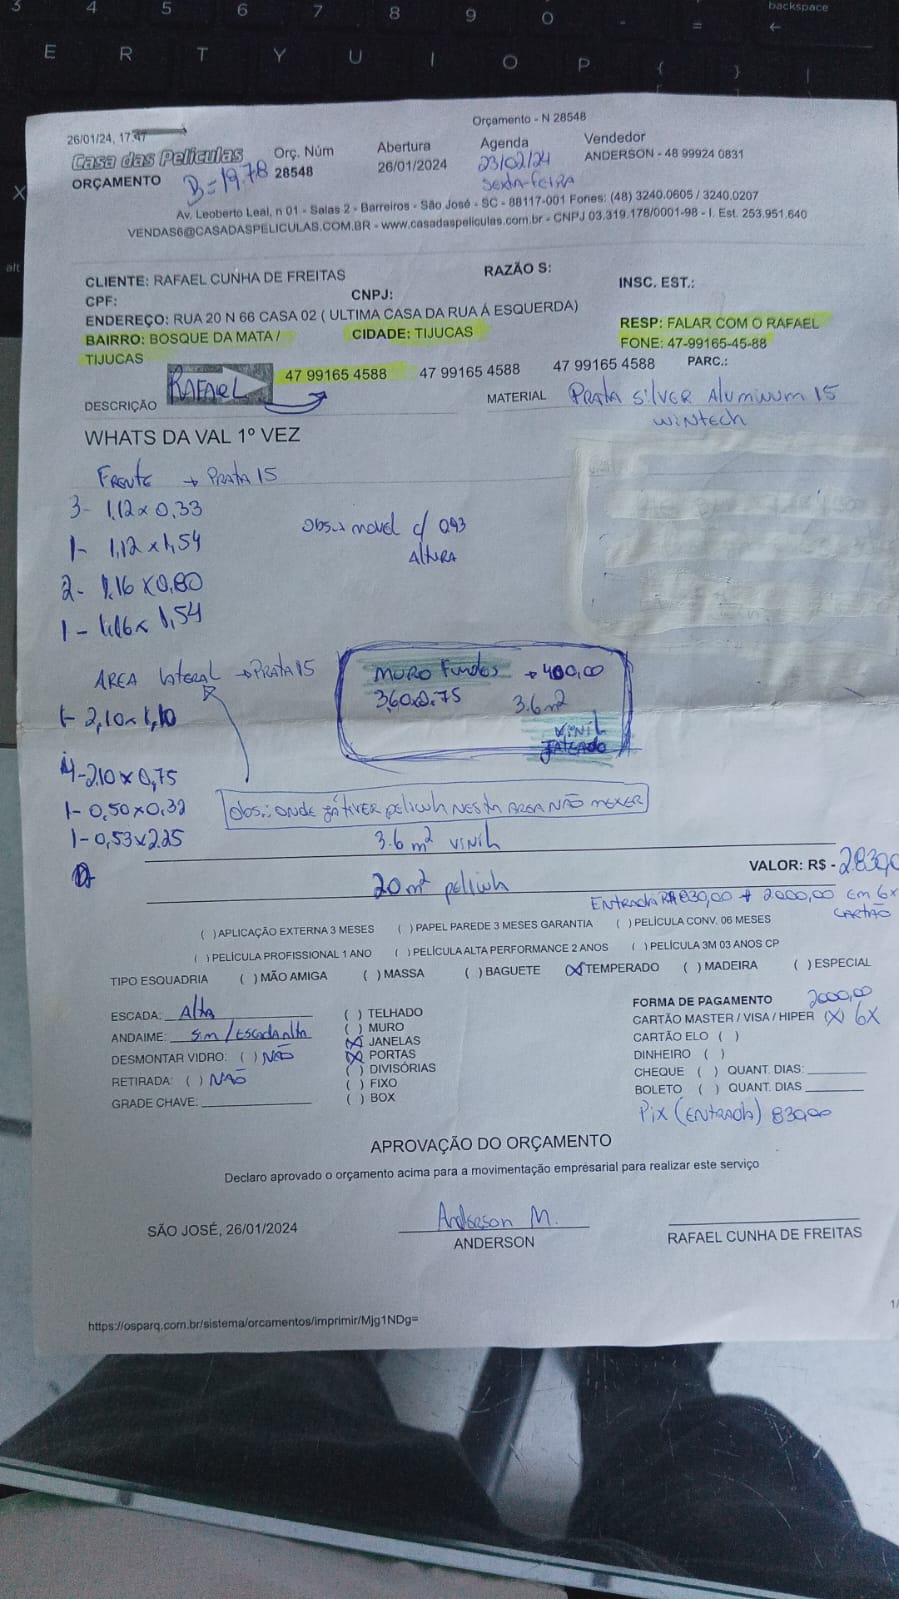 3 4 5 6 7 8 9 0 - = backspace
E R T Y U I O P { } |
X
alt
Orçamento - N 28548
26/01/24, 17:47
Casa das Películas
ORÇAMENTO
B=19.78
Orç. Núm
28548
Abertura
26/01/2024
Agenda
23/02/24
SEXTA-FEIRA
Vendedor
ANDERSON - 48 99924 0831
Av. Leoberto Leal, n 01 - Salas 2 - Barreiros - São José - SC - 88117-001 Fones: (48) 3240.0605 / 3240.0207
VENDAS6@CASADASPELICULAS.COM.BR - www.casadaspeliculas.com.br - CNPJ 03.319.178/0001-98 - I. Est. 253.951.640
CLIENTE: RAFAEL CUNHA DE FREITAS RAZÃO S: INSC. EST.:
CPF: CNPJ:
ENDEREÇO: RUA 20 N 66 CASA 02 ( ULTIMA CASA DA RUA Á ESQUERDA)
BAIRRO: BOSQUE DA MATA / TIJUCAS
CIDADE: TIJUCAS
RESP: FALAR COM O RAFAEL
FONE: 47-99165-45-88
RAFAEL 47 99165 4588 47 99165 4588 47 99165 4588 PARC.:
DESCRIÇÃO
MATERIAL PRATA SILVER ALUMINUM 15
WINTECH
WHATS DA VAL 1º VEZ
FRENTE → PRATA 15
3- 1,12 x 0,33
1- 1,12 x 1,54
2- 1,16 x 0,80
1- 1,16 x 1,54
Obs.: movel c/ 0,93
ALTURA
ÁREA lateral → PRATA 15
1- 2,10 x 1,10
4- 2,10 x 0,75
1- 0,50 x 0,32
1- 0,53 x 2,25
MURO Fundos → 400,00
3,60 x 0,75 3.6 m²
VINIL
JATEADO
Obs.: ONDE JÁ TIVER película NESTA AREA NÃO MEXER
3.6 m² VINIL
20 m² película
VALOR: R$ - 2.830,0
ENTRADA R$ 830,00 + 2.000,00 em 6x
CARTÃO
( ) APLICAÇÃO EXTERNA 3 MESES ( ) PAPEL PAREDE 3 MESES GARANTIA ( ) PELÍCULA CONV. 06 MESES
( ) PELÍCULA PROFISSIONAL 1 ANO ( ) PELÍCULA ALTA PERFORMANCE 2 ANOS ( ) PELÍCULA 3M 03 ANOS CP
TIPO ESQUADRIA ( ) MÃO AMIGA ( ) MASSA ( ) BAGUETE (X) TEMPERADO ( ) MADEIRA ( ) ESPECIAL
ESCADA: Alta
ANDAIME: Sim / Escada Alta
DESMONTAR VIDRO: ( ) NÃO
RETIRADA: ( ) NÃO
GRADE CHAVE:
( ) TELHADO
( ) MURO
(X) JANELAS
(X) PORTAS
( ) DIVISÓRIAS
( ) FIXO
( ) BOX
FORMA DE PAGAMENTO 2000,00
CARTÃO MASTER / VISA / HIPER (X) 6X
CARTÃO ELO ( )
DINHEIRO ( )
CHEQUE ( ) QUANT. DIAS:
BOLETO ( ) QUANT. DIAS
Pix (ENTRADA) 830,00
APROVAÇÃO DO ORÇAMENTO
Declaro aprovado o orçamento acima para a movimentação empresarial para realizar este serviço
SÃO JOSÉ, 26/01/2024
Anderson M.
ANDERSON
RAFAEL CUNHA DE FREITAS
https://osparq.com.br/sistema/orcamentos/imprimir/Mjg1NDg=
1/